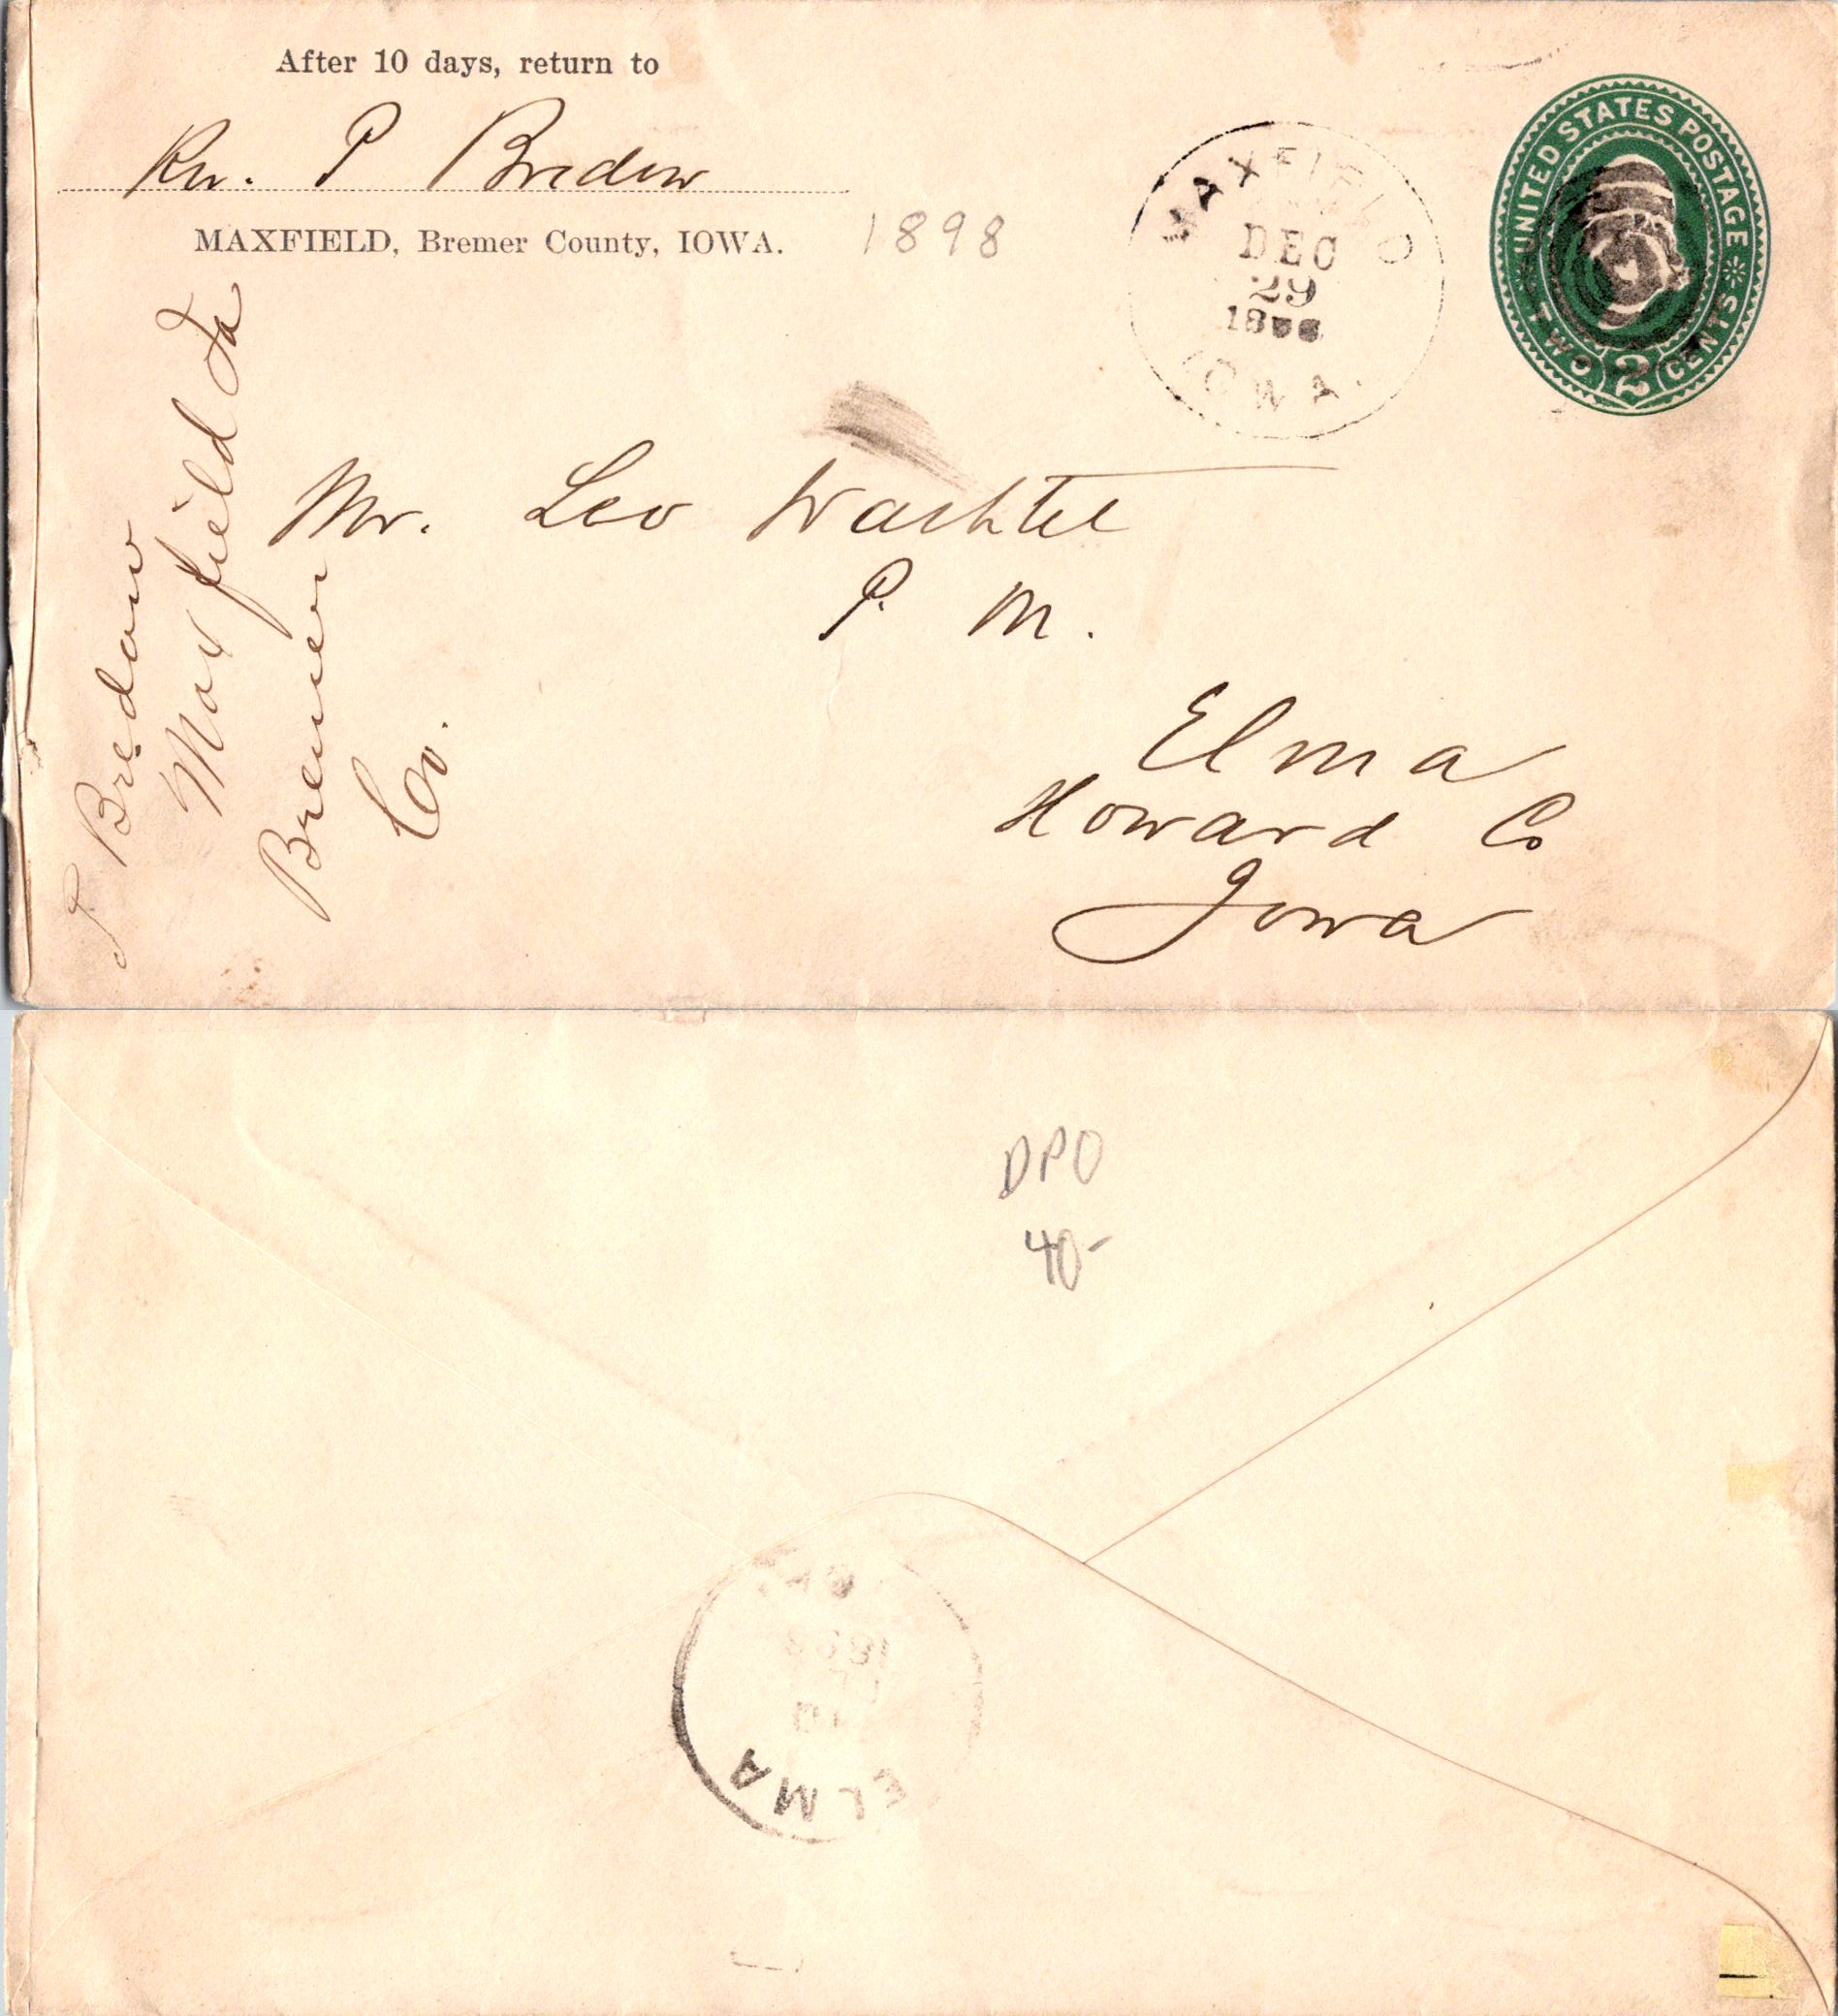 After 10 days, return to
Rev. P Bredow
MAXFIELD, Bremer County, IOWA.
1898
MAXFIELD
DEC
29
IOWA.
UNITED STATES POSTAGE
TWO 2 CENTS
Mr. Leo Wachtel
P. M.
Elma
Howard Co
Iowa
Bredow
Maxfield Ia
Bremer
Co.
DPO
40-
ELMA